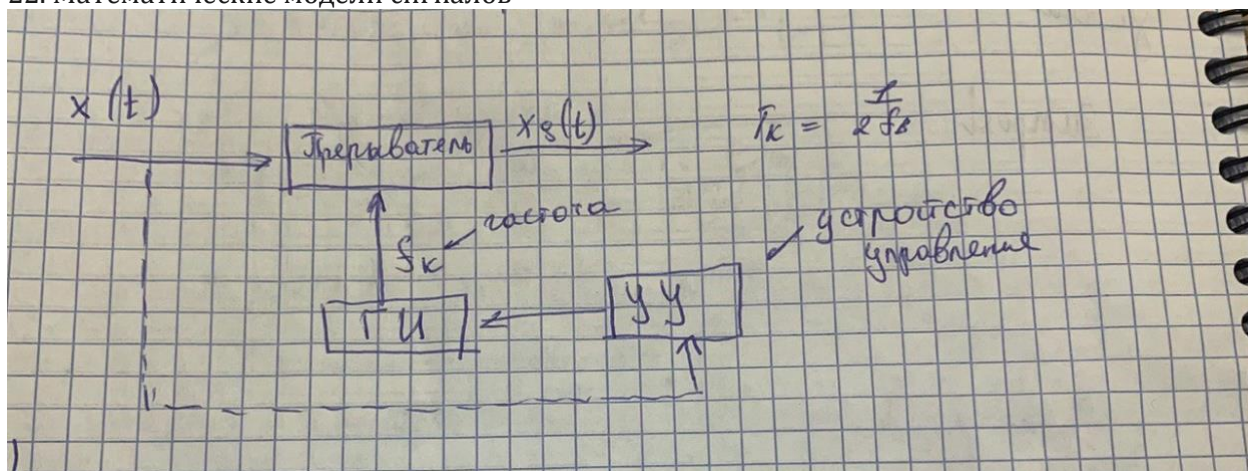 22. Математические модели сигналов
x (t)
Прерыватель
xg(t)
Tк = 1
2 fв
частота
fк
устройство
управления
ГИ
УУ